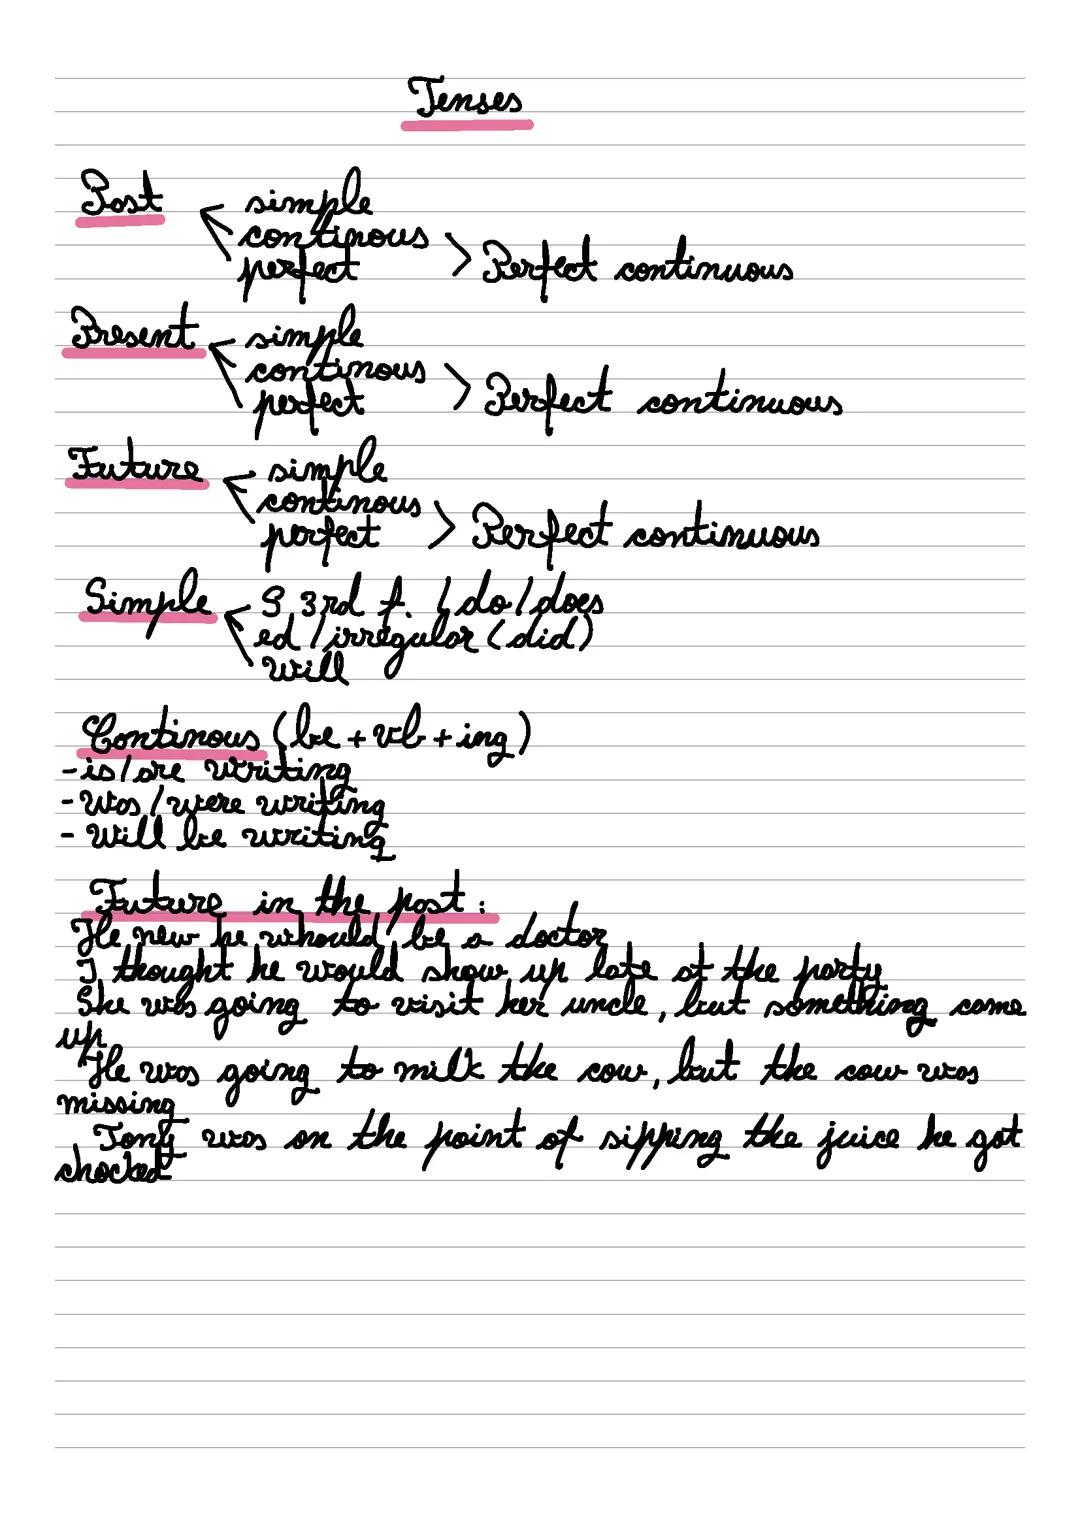 Tenses
Past simple
continous
perfect > Perfect continuous
Present simple
continous
perfect > Perfect continuous
Future simple
continous
perfect > Perfect continuous
Simple S 3rd / do / does
ed / irregular (did)
will
Continous (be + vb + ing)
- is / are writing
- Was / were writing
- Will be writing
Future in the past :
He new he whould be a doctor
I thought he would show up late at the party
She was going to visit her uncle, but something came
up
He was going to milk the cow, but the cow was
missing
Tony was on the point of sipping the juice he got
chocked